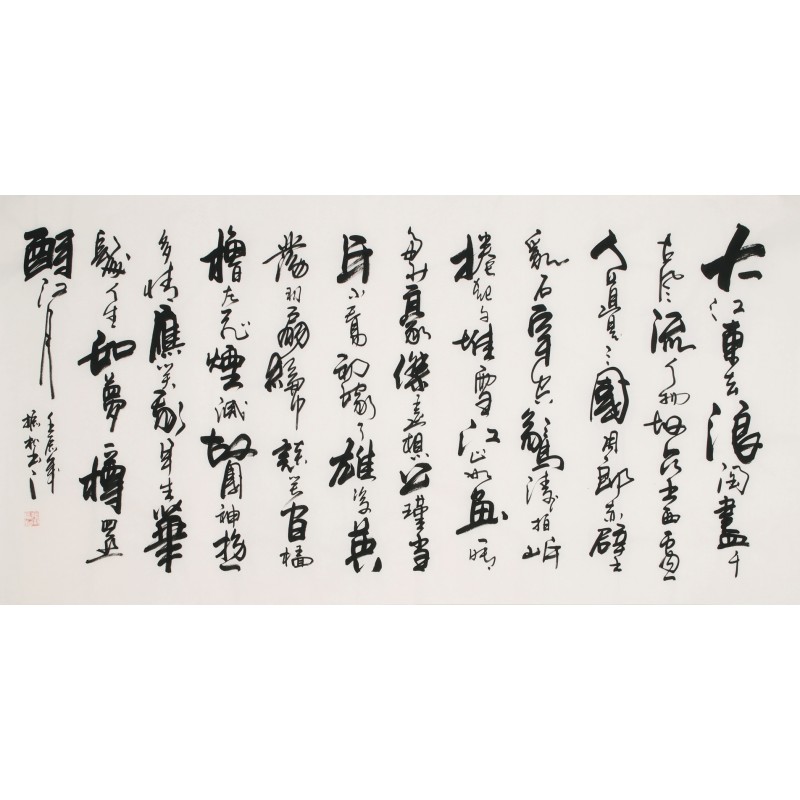 大江東去浪淘盡千
古風流人物故壘西邊
人道是三國周郎赤壁
亂石穿空驚濤拍岸
捲起千堆雪江山如畫一時
多少豪傑遙想公瑾當
年小喬初嫁了雄姿英
發羽扇綸巾談笑間檣
櫓灰飛煙滅故國神遊
多情應笑我早生華
髮人生如夢一樽還
酹江月
壬辰年
書